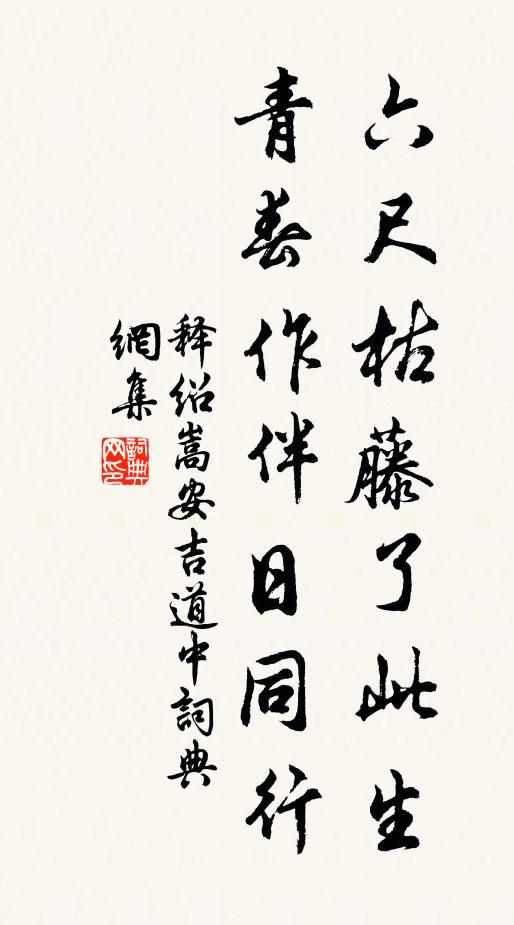 六尺枯藤了此生
青春作伴日同行
释绍嵩安吉道中詞典
網集
詞典網印